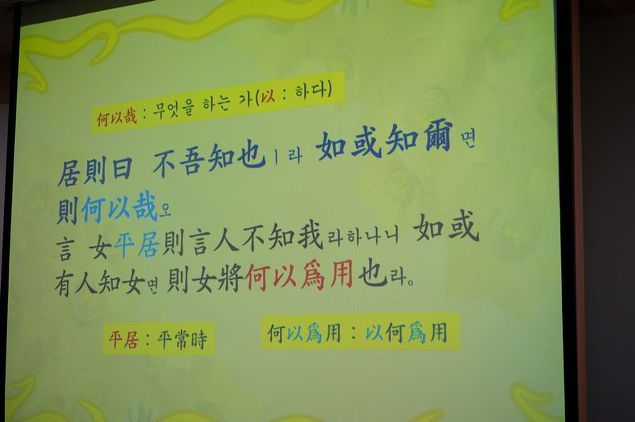 何以哉 : 무엇을 하는 가(以 : 하다)
居則曰 不吾知也ㅣ라 如或知爾면
則何以哉오
言 女平居則言人不知我라하나니 如或
有人知女면 則女將何以爲用也라。
平居 : 平常時
何以爲用 : 以何爲用